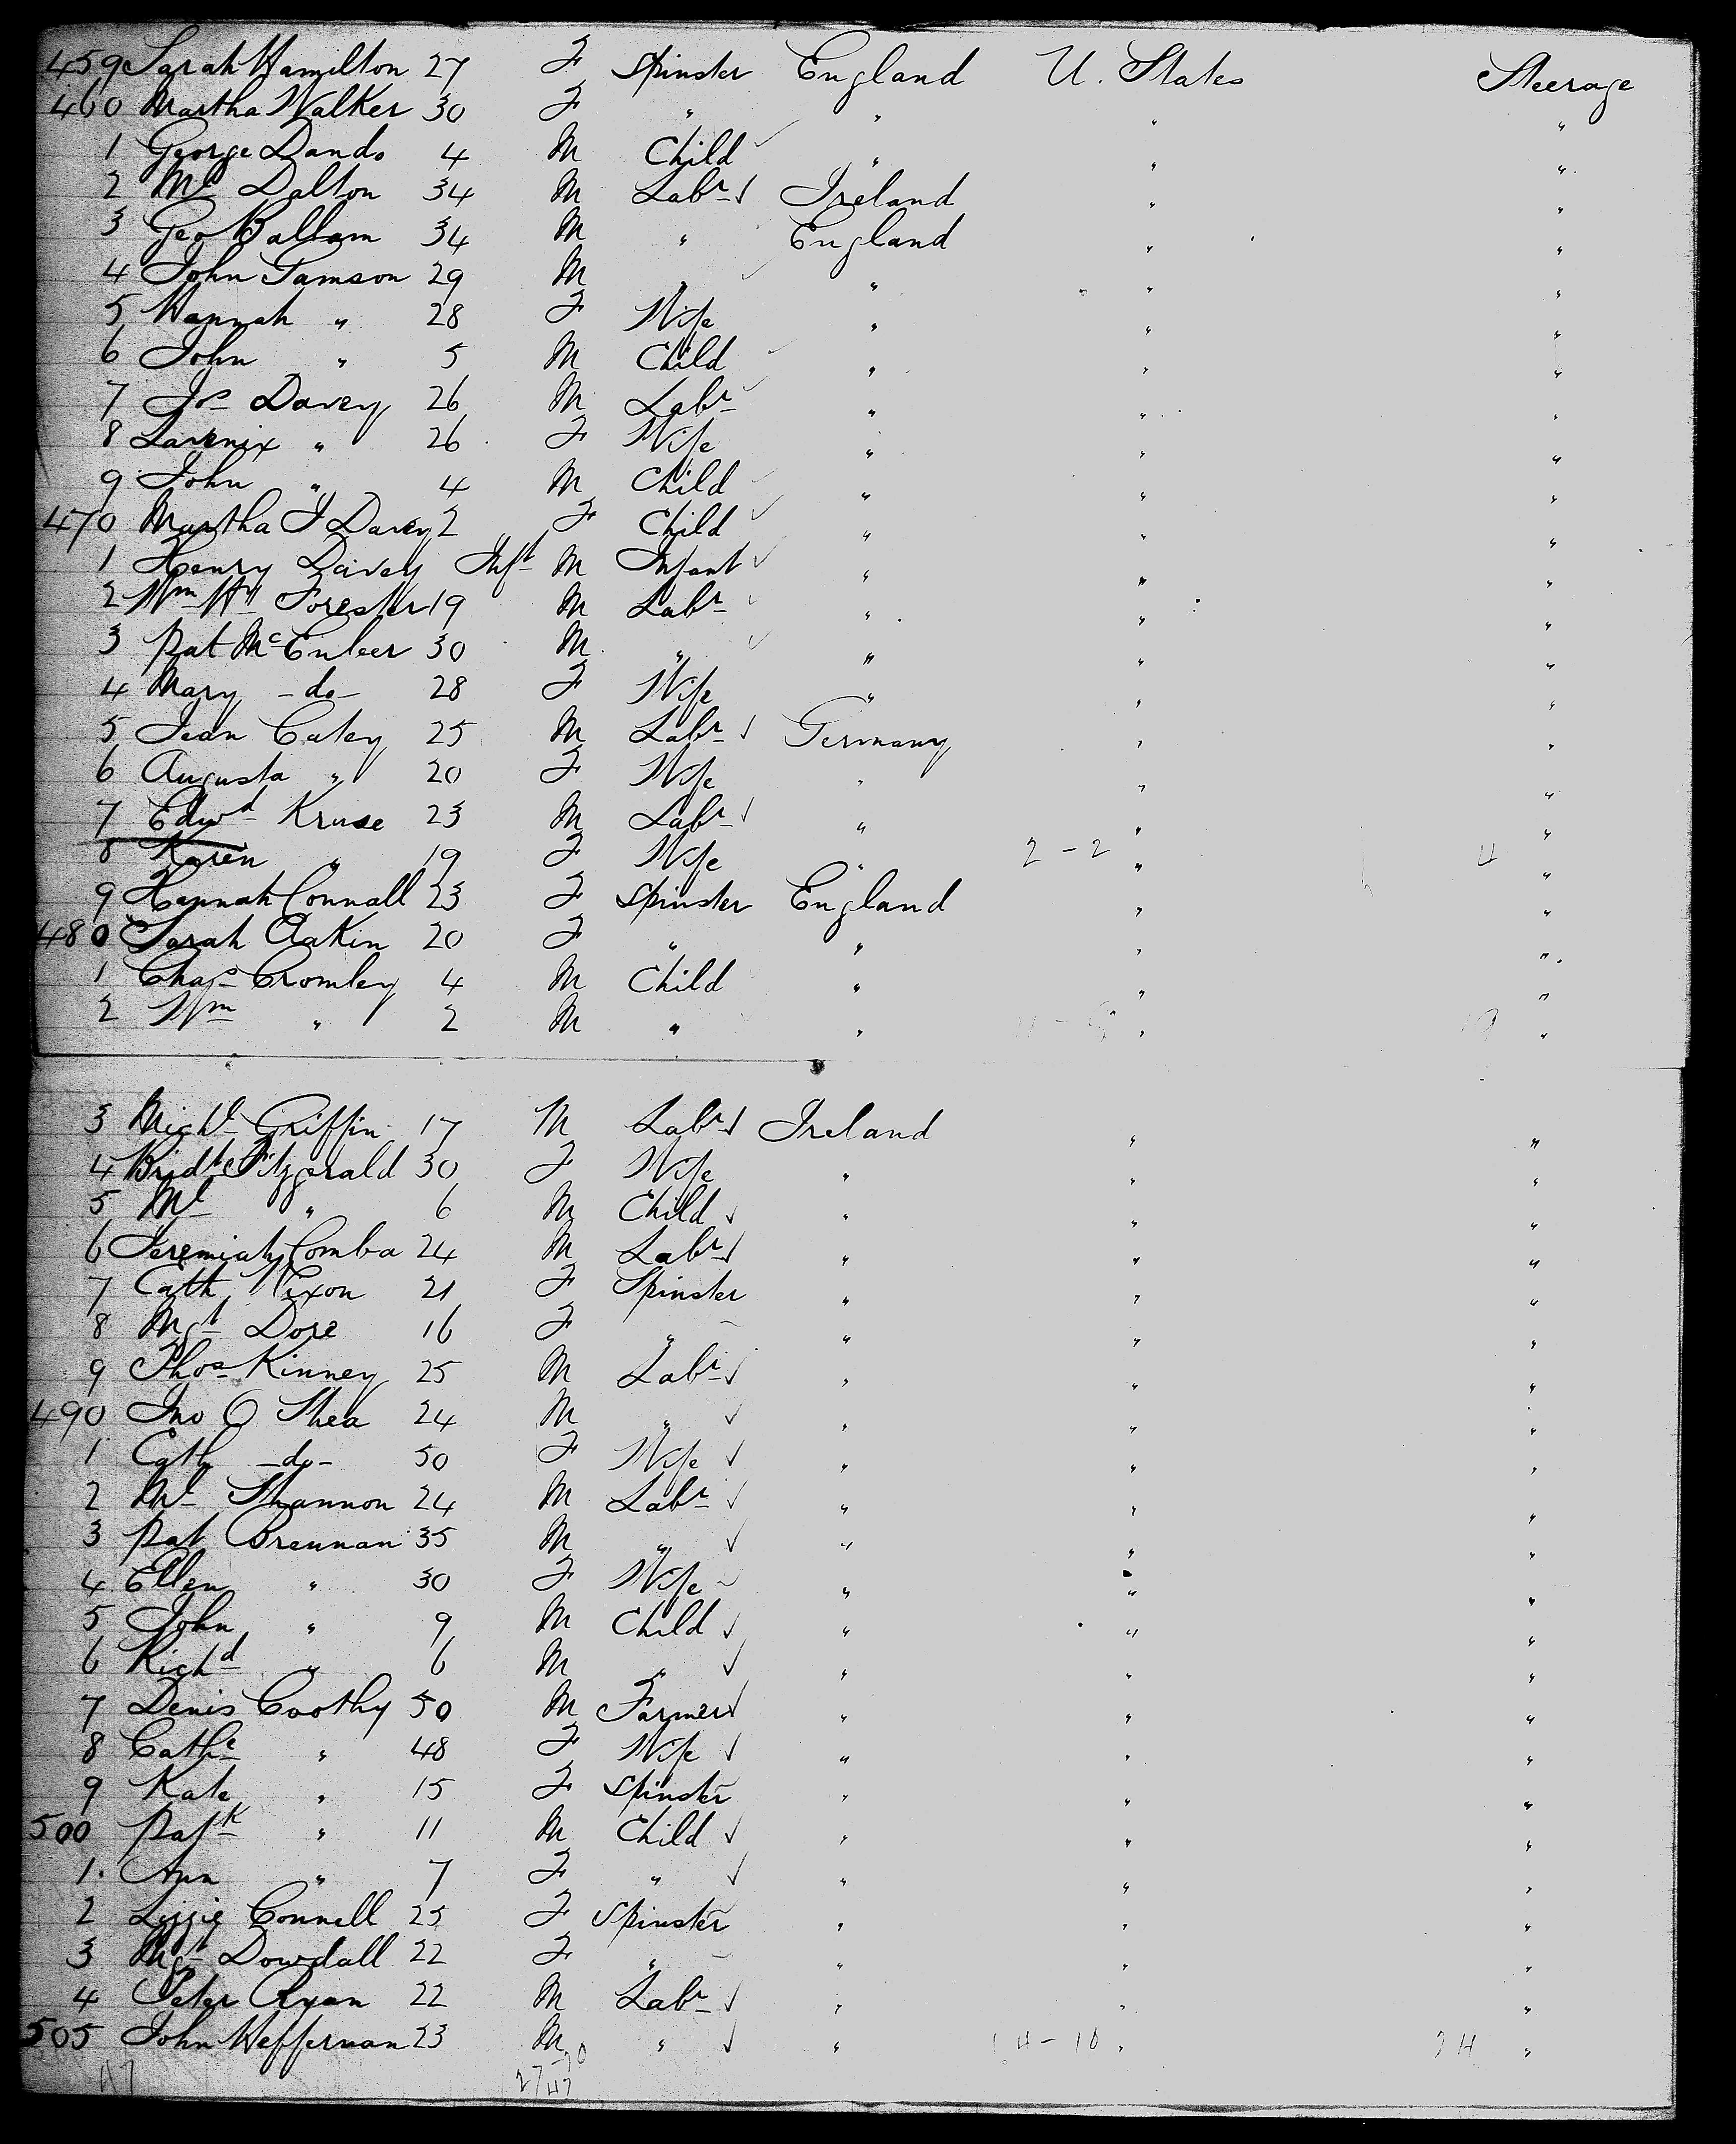 459 Sarah Hamilton 27 F Spinster England U. States Steerage
460 Martha Walker 30 F " " " "
1 George Dando 4 M Child " " "
2 Ml Dalton 34 M Labr Ireland " "
3 Geo Ballam 34 M " England " "
4 John Tamson 29 M " " " "
5 Hannah " 28 F Wife " " "
6 John " 5 M Child " " "
7 Jos Davey 26 M Labr " " "
8 Lavenix " 26 F Wife " " "
9 John " 4 M Child " " "
470 Martha J Davey 2 F Child " " "
1 Henry Davey Inft M Infant " " "
2 Wm Hy Forester 19 M Labr " " "
3 Pat McEnleer 30 M " " " "
4 Mary -do- 28 F Wife " " "
5 Jean Catey 25 M Labr Germany " "
6 Augusta " 20 F Wife " " "
7 Edwd Kruse 23 M Labr " " "
8 Karen " 19 F Wife " 2-2 " 4 "
9 Hannah Connall 23 F Spinster England " "
480 Sarah Eakin 20 F " " " "
1 Chas Cromley 4 M Child " " "
2 Wm " 2 M " " " "
3 Michl Griffin 17 M Labr Ireland " "
4 Bridt Fitzgerald 30 F Wife " " "
5 Ml " 6 M Child " " "
6 Jeremiah Comba 24 M Labr " " "
7 Cath Nixon 21 F Spinster " " "
8 Mgt Dore 16 F " " " "
9 Thos Kinney 25 M Labr " " "
490 Jno O Shea 24 M " " " "
1 Cath -do- 50 F Wife " " "
2 Ml Shannon 24 M Labr " " "
3 Pat Brennan 35 M " " " "
4 Ellen " 30 F Wife " " "
5 John " 9 M Child " " "
6 Richd " 6 M " " " "
7 Denis Coothy 50 M Farmer " " "
8 Cathe " 48 F Wife " " "
9 Kate " 15 F Spinster " " "
500 Patk " 11 M Child " " "
1 Ann " 7 F " " " "
2 Lizzie Connell 25 F Spinster " " "
3 Mgt Dowdall 22 F " " " "
4 Peter Ryan 22 M Labr " " "
505 John Heffernan 23 M " " 14-10 " 24 "
47 27 20 47